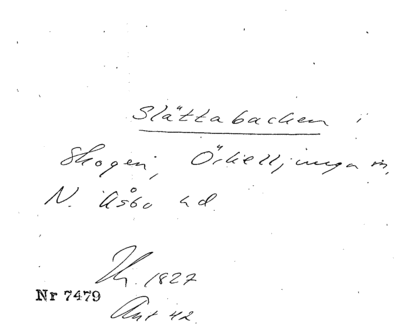 Slättabacken i
Skogen, Örkelljunga sn,
N. Åsbo hd
Th. 1827
Nr 7479
Ant 42